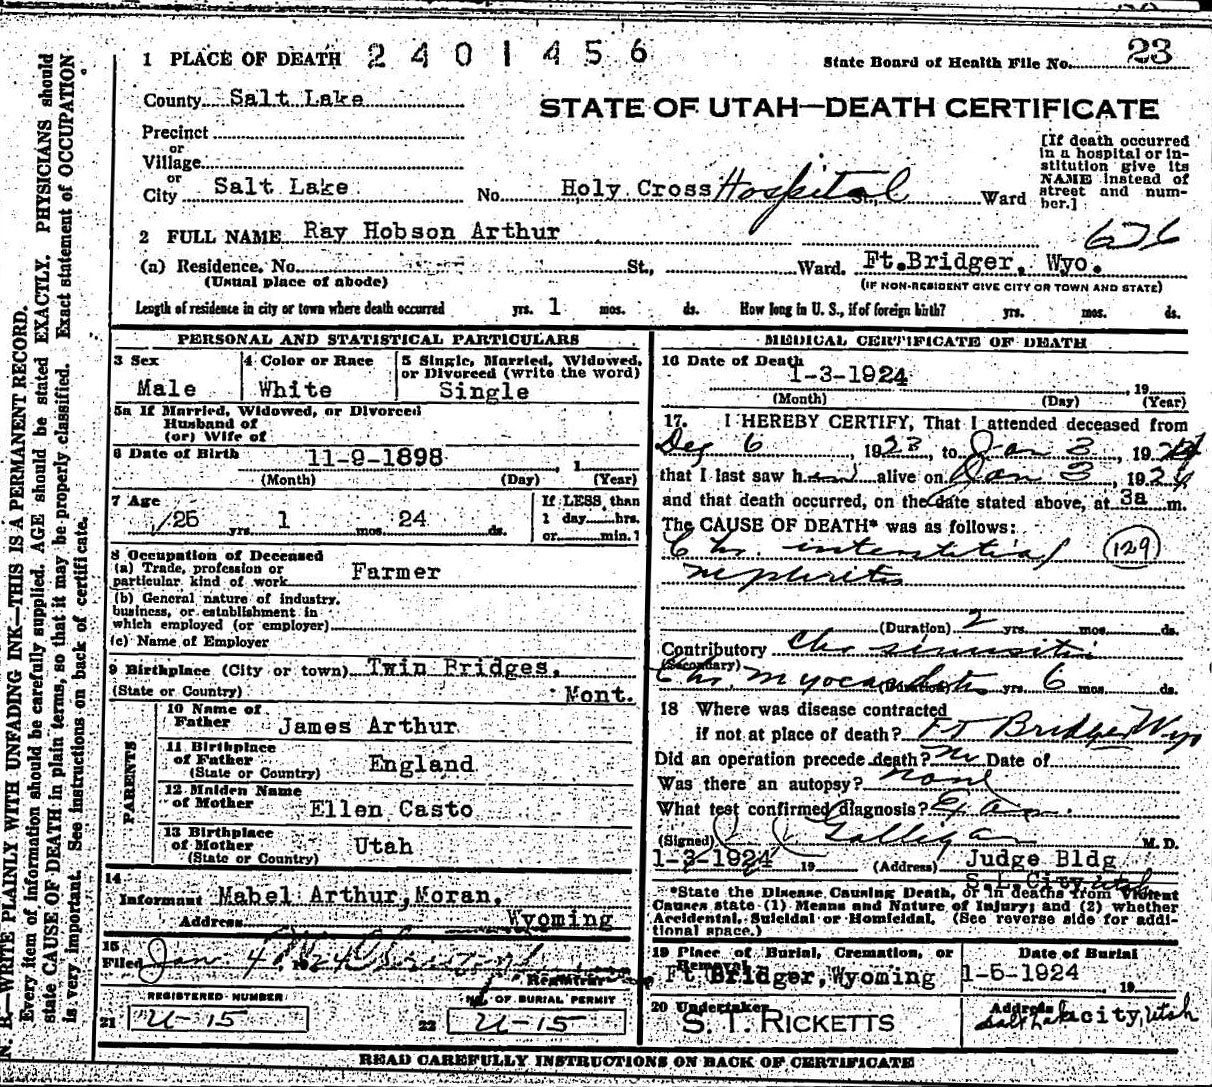 1 PLACE OF DEATH 2 4 0 1 4 5 6
State Board of Health File No. 23
County Salt Lake
STATE OF UTAH—DEATH CERTIFICATE
Precinct
or
Village
or
City Salt Lake No. Holy Cross Hospital St., Ward
[If death occurred
in a hospital or in-
stitution give its
NAME instead of
street and num-
ber.]
2 FULL NAME Ray Hobson Arthur 676
(a) Residence. No. St., Ward. Ft.Bridger, Wyo.
(Usual place of abode) (IF NON-RESIDENT GIVE CITY OR TOWN AND STATE)
Length of residence in city or town where death occurred yrs. 1 mos. ds. How long in U. S., if of foreign birth? yrs. mos. ds.
PERSONAL AND STATISTICAL PARTICULARS
3 Sex 4 Color or Race 5 Single, Married, Widowed,
or Divorced (write the word)
Male White Single
5a If Married, Widowed, or Divorced
Husband of
(or) Wife of
6 Date of Birth 11-9-1898 , 1
(Month) (Day) (Year)
7 Age If LESS than
25 yrs. 1 mos. 24 ds. 1 day hrs.
or min.?
8 Occupation of Deceased
(a) Trade, profession or
particular kind of work Farmer
(b) General nature of industry,
business, or establishment in
which employed (or employer)
(c) Name of Employer
9 Birthplace (City or town) Twin Bridges,
(State or Country) Mont.
PARENTS
10 Name of
Father James Arthur
11 Birthplace
of Father England
(State or Country)
12 Maiden Name
of Mother Ellen Casto
13 Birthplace
of Mother Utah
(State or Country)
14
Informant Mabel Arthur Moran,
Address Wyoming
15
Filed Jan. 4 1924
Registrar
REGISTERED NUMBER NO. OF BURIAL PERMIT
21 U-15 22 U-15
MEDICAL CERTIFICATE OF DEATH
16 Date of Death
1-3-1924 , 19
(Month) (Day) (Year)
17. I HEREBY CERTIFY, That I attended deceased from
Dec 6 , 1923, to Jan 3 , 1924
that I last saw him alive on Jan 3 , 1924
and that death occurred, on the date stated above, at 3a m.
The CAUSE OF DEATH* was as follows:
Chr. interstitial (129)
nephritis
(Duration) 2 yrs. mos. ds.
Contributory Chr sinusitis
(Secondary)
Chr. Myocarditis (Duration) yrs. 6 mos. ds.
18 Where was disease contracted
if not at place of death? Ft Bridger Wyo
Did an operation precede death? No Date of
Was there an autopsy? none
What test confirmed diagnosis?
(Signed) Galligan M.D.
1-3-1924 19 (Address) Judge Bldg
S.L.City Utah
*State the Disease Causing Death, or in deaths from Violent
Causes state (1) Means and Nature of Injury; and (2) whether
Accidental, Suicidal or Homicidal. (See reverse side for addi-
tional space.)
19 Place of Burial, Cremation, or Date of Burial
Removal
Ft Bridger,Wyoming 1-5-1924 , 19
20 Undertaker Address
S. T. RICKETTS Salt Lake city, Utah
READ CAREFULLY INSTRUCTIONS ON BACK OF CERTIFICATE
N. B.—WRITE PLAINLY WITH UNFADING INK—THIS IS A PERMANENT RECORD.
Every item of information should be carefully supplied. AGE should be stated EXACTLY. PHYSICIANS should
state CAUSE OF DEATH in plain terms, so that it may be properly classified. Exact statement of OCCUPATION
is very important. See instructions on back of certificate.